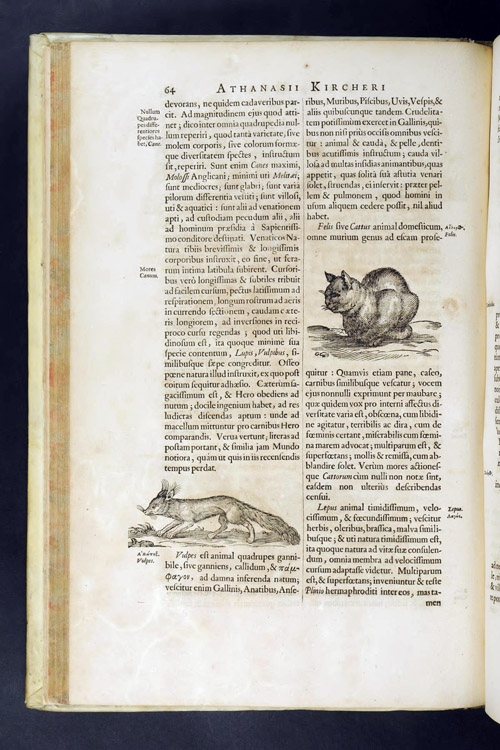 64 ATHANASII KIRCHERI
Nullum
Quadru-
pes diffe-
rentiores
species ha-
bet, Cane.
devorans, ne quidem cadaveribus par-
cit. Ad magnitudinem ejus quod atti-
net; dico inter omnia quadrupedia nul-
lum reperiri, quod tantâ varietate, sive
molem corporis, sive colorum formæ-
que diversitatem spectes, instructum
sit, reperiri. Sunt enim Canes maximi,
Molossi Anglicani; minimi uti Melitæi;
sunt mediocres; sunt glabri; sunt varia
pilorum differentia vestiti; sunt villosi,
uti & aquatici: sunt alii ad venationem
apti, ad custodiam pecudum alii, alii
ad hominum præsidia à Sapientissi-
mo conditore destinati. Venaticos Na-
tura tibiis brevissimis & longissimis
Mores
Canum.
corporibus instruxit, eo fine, ut fera-
rum intima latibula subirent. Cursori-
bus verò longissimas & subtiles tribuit
ad facilem cursum, pectus latissimum ad
respirationem, longum rostrum ad aëris
in currendo sectionem, caudam cæte-
ris longiorem, ad inversiones in reci-
proco cursu regendas; quod uti libi-
dinosum est, ita quoque minimè sua
specie contentum, Lupis, Vulpibus, si-
milibusque sæpe congreditur. Osseo
pœne natura illud instruxit, ex quo post
coitum sequitur adhæsio. Cæterùm sa-
gacissimum est, & Hero obediens ad
nutum; docile ingenium habet, ad res
ludicras discendas aptum: unde ad
macellum mittuntur pro carnibus Hero
comparandis. Verua vertunt; literas ad
postam portant, & similia jam Mundo
notiora, quàm ut quis in iis recensendis
tempus perdat.
Vulpes.
Vulpes est animal quadrupes ganni-
bile, sive ganniens, callidum, & πάμ-
φαγον, ad damna inferenda natum;
vescitur enim Gallinis, Anatibus, Anse-
ribus, Muribus, Piscibus, Uvis, Vespis, &
aliis quibuscunque tandem. Crudelita-
tem potissimùm exercet in Gallinis, qui-
bus non nisi priùs occisis omnibus vesci-
tur: animal & caudâ, & pelle, denti-
bus acutissimis instructum; cauda vil-
losa ad multas insidias animantibus, quas
appetit, quas solitâ suâ astutia venari
solet, struendas, ei inservit: præter pel-
lem & pulmonem, quod homini in
usum aliquem cedere possit, nil aliud
habet.
Felis sive Cattus animal domesticum,
omne murium genus ad escam prose-
Felis.
quitur: Quamvis etiam pane, caseo,
carnibus similibusque vescatur; vocem
ejus nonnulli exprimunt per maubare;
quæ quidem vox pro interni affectus di-
versitate varia est, obscœna, cum libidi-
ne agitatur, terribilis ac dira, cum de
fœminis certant, miserabilis cum fœmi-
na marem advocat; multiparum est, &
superfœtans; mollis & remissa, cum ab-
blandire solet. Verùm mores actiones-
que Cattorum cùm nulli non notæ sint,
easdem non ulteriùs describendas
censui.
Lepus animal timidissimum, velo-
cissimum, & fœcundissimum; vescitur
herbis, oleribus, brassica, malva simili-
busque; & uti natura timidissimum est,
ita quoque natura ad vitæ suæ consulen-
dum, omnia membra ad velocissimum
cursum adaptasse videtur. Multiparum
est, & superfœtans; inveniuntur & teste
Plinio hermaphroditi inter eos, mas ta-
men
Lepus.
Λαγώς.